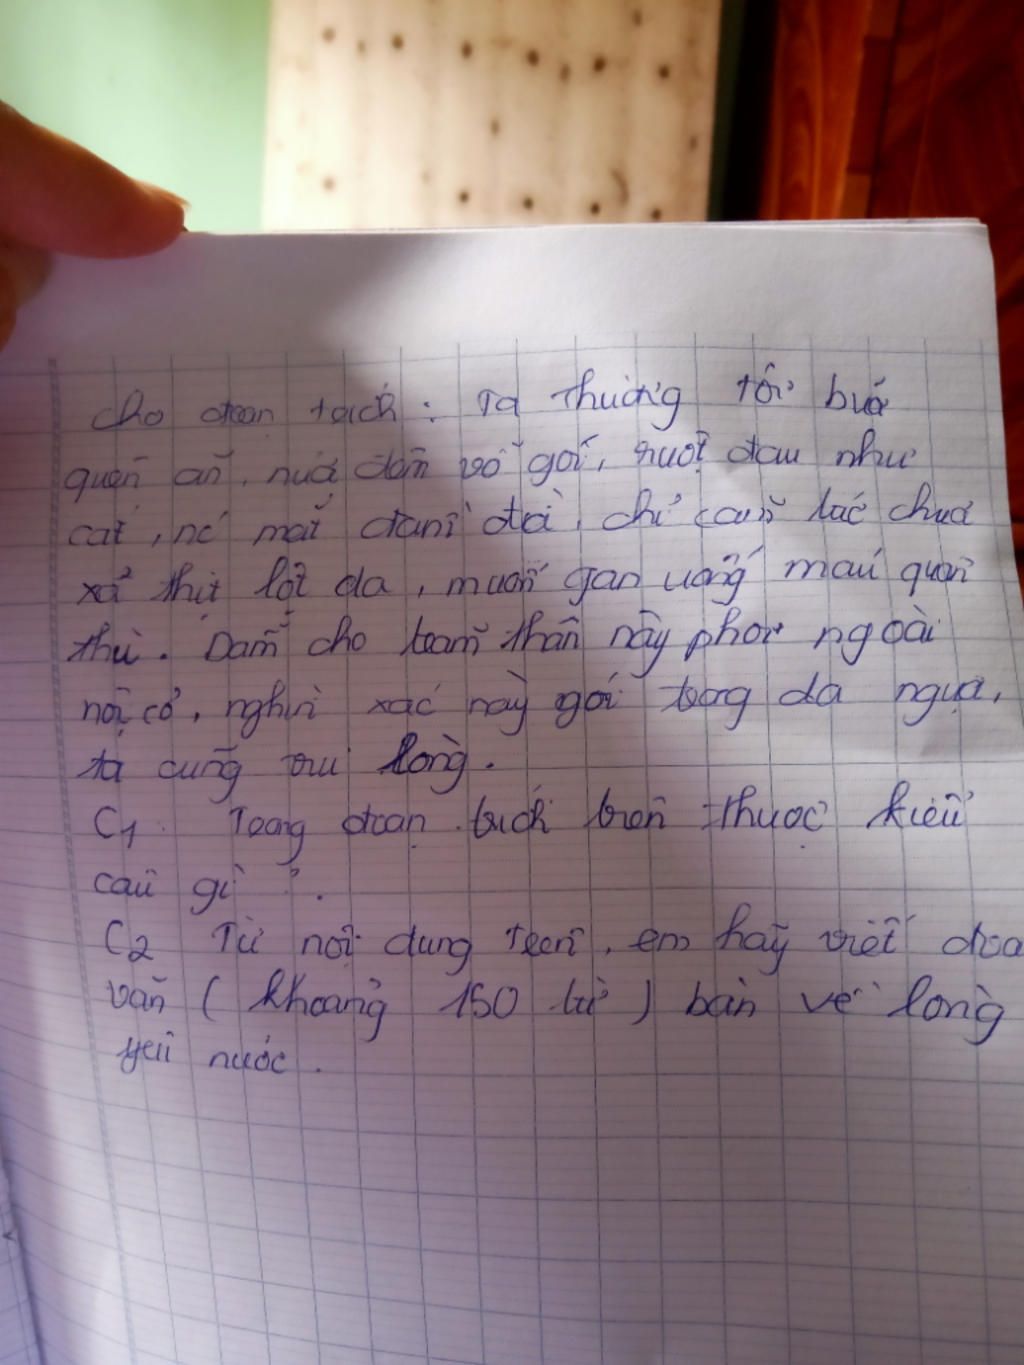 cho đoạn trích: Ta thường tới bữa
quên ăn, nửa đêm vỗ gối, ruột đau như
cắt, nc mắt đầm đìa, chỉ căm tức chưa
xả thịt lột da, nuốt gan uống máu quân
thù. Dẫu cho trăm thân này phơi ngoài
nội cỏ, nghìn xác này gói trong da ngựa,
ta cũng vui lòng.
C1 Trong đoạn trích trên thuộc kiểu
câu gì?.
C2 Từ nội dung trên, em hãy viết đoạ
văn (khoảng 150 từ) bàn về lòng
yêu nước.